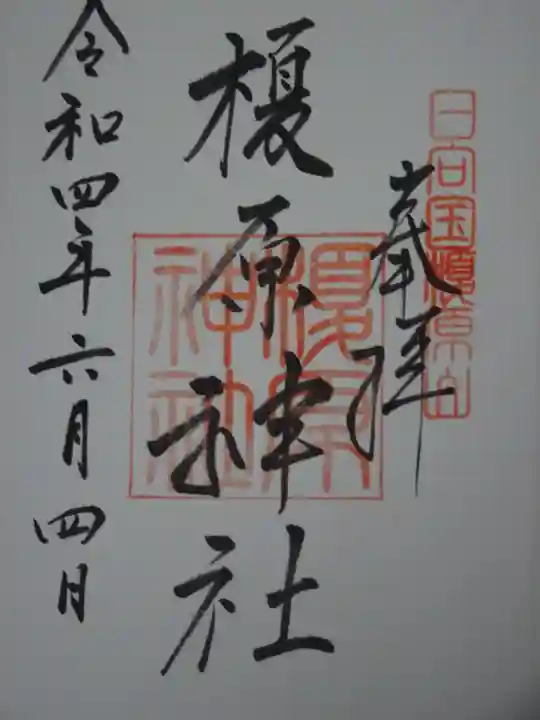 日向国榎原山
奉拝
榎原神社
榎原神社
令和四年六月四日